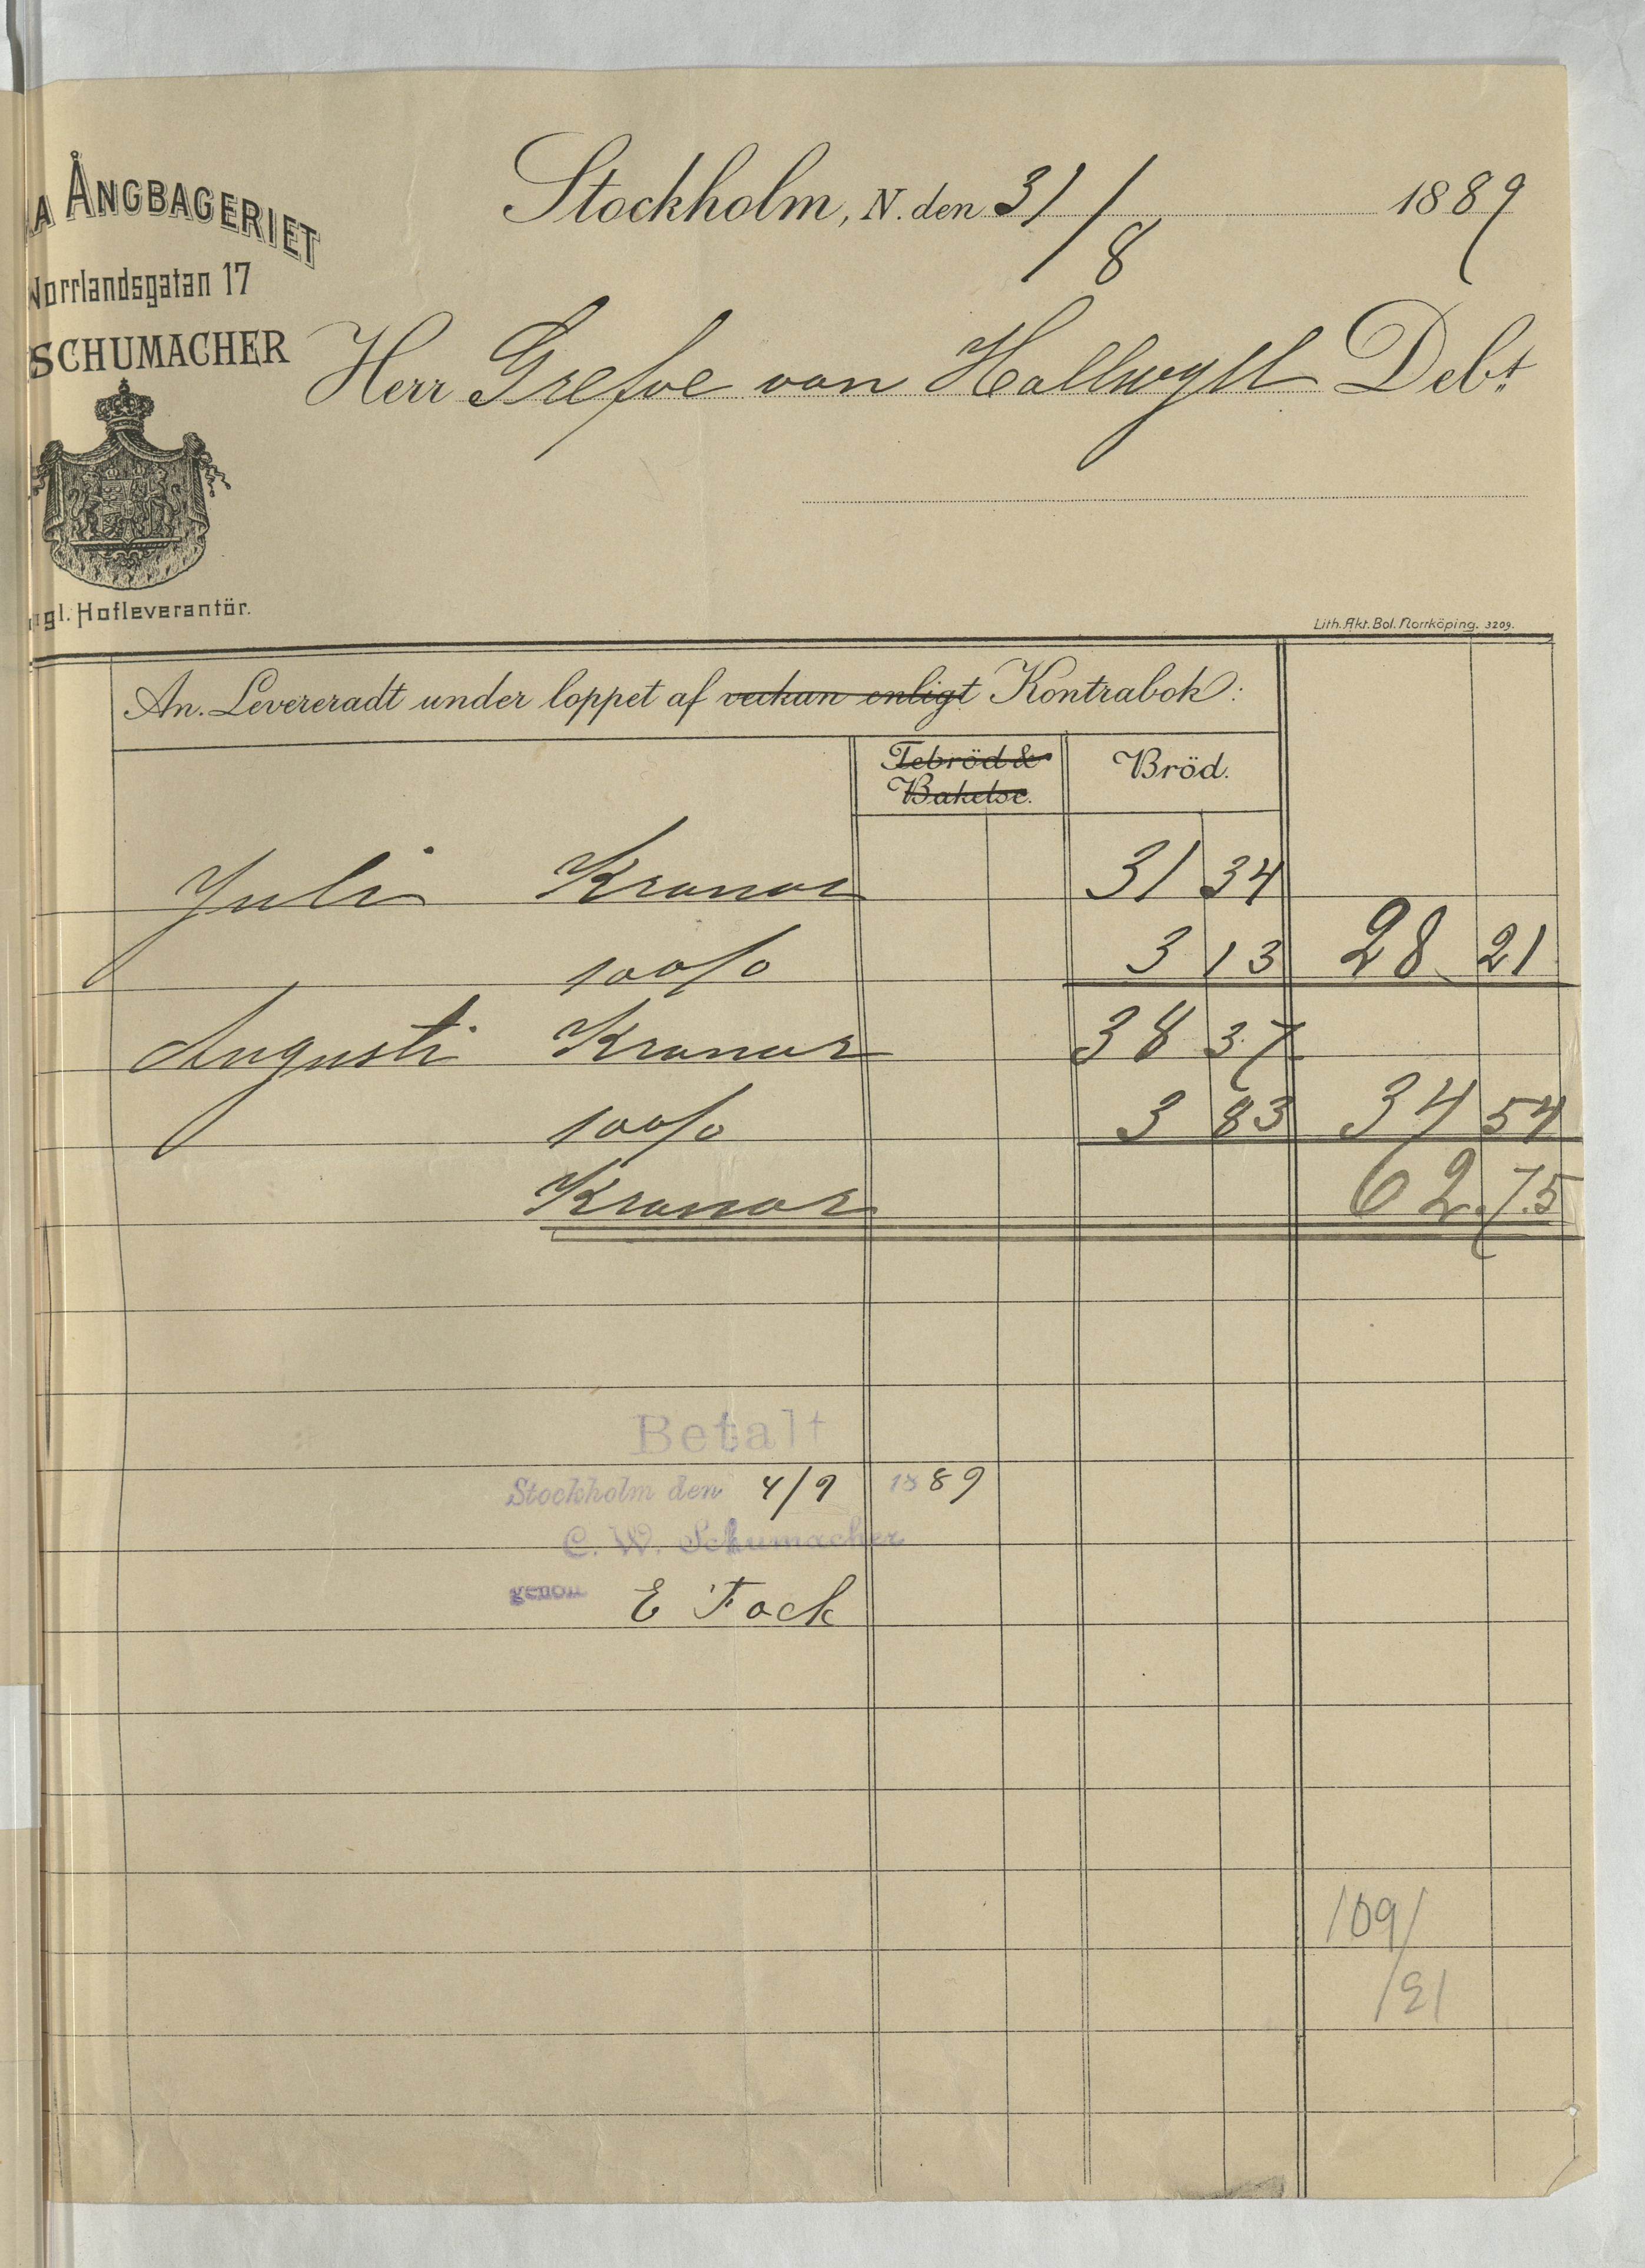 A ÅNGBAGERIET
Norrlandsgatan 17
SCHUMACHER
gl. Hofleverantör.
Stockholm, N. den 31/8 1889
Herr Grefve von Hallwyll Debt.
Lith. Akt. Bol. Norrköping. 3209.
An. Levereradt under loppet af veckan enligt Kontrabok:
Tebröd & Bakelse.
Bröd.
Juli Kronor 31 34
10 0/0 3 13 28 21
Augusti Kronor 38 37
10 0/0 3 83 34 54
Kronor 62.75
Betalt
Stockholm den 4/9 1889
C. W. Schumacher
genom E Fock
109/
/31